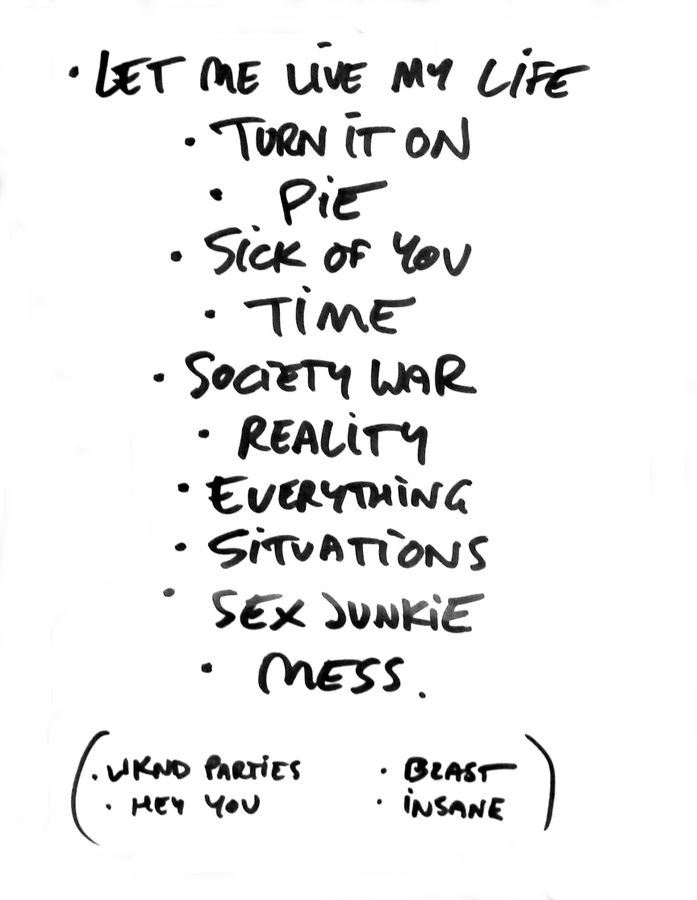 · LET ME LIVE MY LIFE
· TURN IT ON
· PIE
· SICK OF YOU
· TIME
· SOCIETY WAR
· REALITY
· EVERYTHING
· SITUATIONS
· SEX JUNKIE
· MESS.
(· WKND PARTIES · BLAST)
· HEY YOU · INSANE